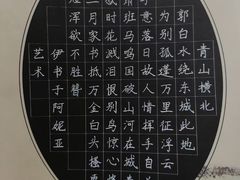 青山横北
郭白水绕东城此地
为别孤蓬万里征浮云
意落日故人情挥手自
班马鸣国破山河在城
时花溅泪恨别鸟惊心
月家书抵万金白头搔更
浑欲不胜簪
伊书于阿妮亚
艺术